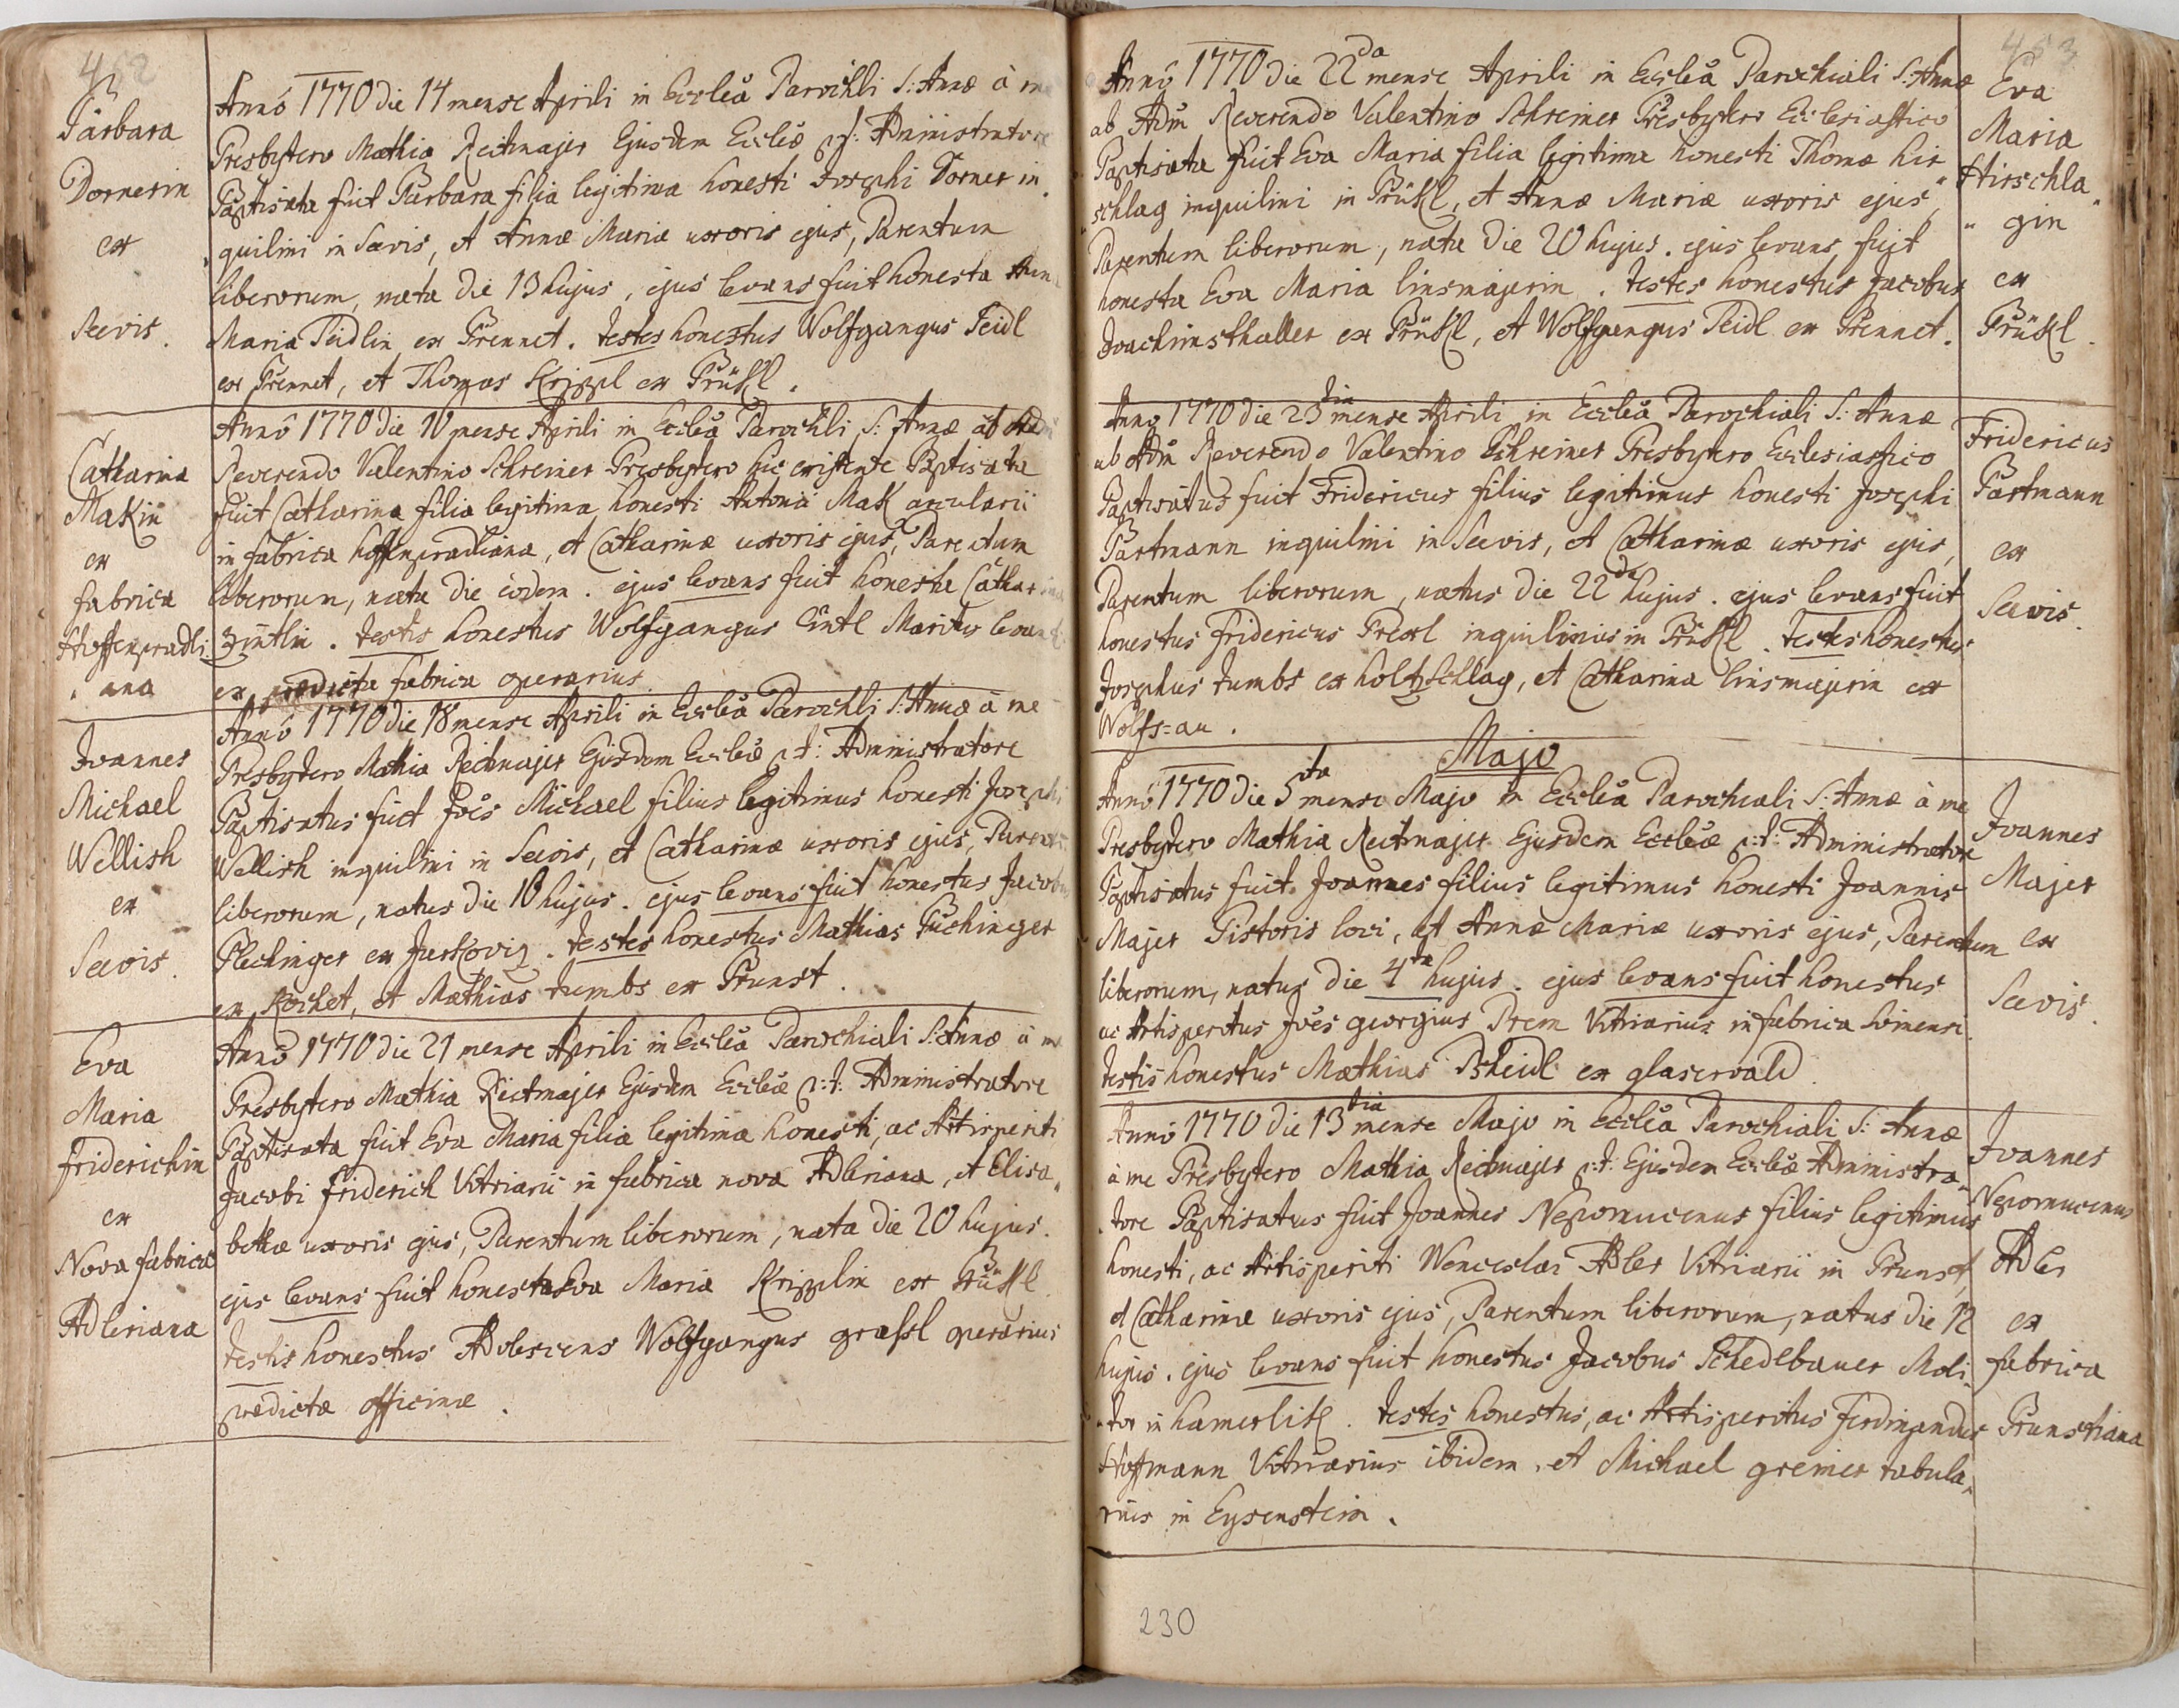 462
Barbara
Dornerin
ex
Seevis.
Annô 1770 die 14 mense Aprili in Eccleâ Parochli S: Annæ à me
Presbytero Mathia Reitmajer Ejusdem Eccleæ p.t: Administratore
Baptisata fuit Barbara filia legitima honesti Josephi Dorner in„
„quilini in Seevis, et Annæ Mariæ uxoris ejus, Parentum
liberorum, nata die 13 hujus, ejus levans fuit honesta Anna
Maria Peidlin ex Prennet. testes honestus Wolfgangus Peidl
ex Prennet, et Thomas Krippl ex Brükl.
Catharina
Makin
ex
fabrica
Hoffenpradli
„ana
Annô 1770 die 10 mense Aprili in Eccleâ Parochli S: Annæ ab Adm
Reverendo Valentino Schreiner Presbytero hic existente Baptisata
fuit Catharina filia legitima honesti Antonii Mak arcularii
in fabrica hoffenpradliana, et Catharinæ uxoris ejus, Parentum
liberorum, nata die eodem. ejus levans fuit honesta Catharina
Zintlin. testis honestus Wolfgangus Cintl Maritus levantis
ex prædicta fabrica operarius
Joannes
Michael
Wellish
ex
Seevis.
Annô 1770 die 18 mense Aprili in Eccleâ Parochli S: Annæ à me
Presbytero Mathia Reitmajer Ejusdem Eccleæ p.t: Administratore
Baptisatus fuit Joẽs Michael filius legitimus honesti Josephi
Wellish inquilini in Seevis, et Catharinæ uxoris ejus, Parentũ
liberorum, natus die 18 hujus. ejus levans fuit honestus Jacobus
Plechinger ex Jurkoviz. testes honestus Mathias Puchinger
ex Kochet, et Mathias tumbs ex Prunst.
Eva
Maria
friderichin
ex
Nova fabrica
Adleriana
Annô 1770 die 21 mense Aprili in Eccleâ Parochiali S: Annæ à me
Presbytero Mathia Reitmajer Ejusdem Eccleæ p:t: Administratore
Baptisata fuit Eva Maria filia legitima honesti, ac Artisperiti
Jacobi friderich Vitriarii in fabrica nova Adleriana, et Elisa„
bethæ uxoris ejus, Parentum liberorum, nata die 20 hujus.
ejus levans fuit honesta Eva Maria Kripplin ex Brükl.
testis honestus Adolescens Wolfgangus grassl operarius
prædictæ officinæ.
463
Annô 1770 die 22da mense Aprili in Eccleâ Parochiali S: Annæ
ab Adm Reverendo Valentino Schreiner Presbytero Ecclesiastico
Baptisata fuit Eva Maria filia legitima honesti Thomæ hir„
„schlag inquilini in Brükl, et Annæ Mariæ uxoris ejus,
Parentum liberorum, nata die 20 hujus. ejus levans fuit
honesta Eva Maria linsmajerin. testes honestus Jacobus
Joachimsthaller ex Brükl, et Wolfgangus Peidl ex Prennet.
Eva
Maria
Hirschla„
„gin
ex
Brükl.
Anno 1770 die 23tia mense Aprili in Eccleâ Parochiali S: Annæ
ab Adm Reverendo Valentino Schreiner Presbytero Ecclesiastico
Baptisatus fuit Fridericus filius legitimus honesti Josephi
Partmann inquilini in Seevis, et Catharinæ uxoris ejus,
Parentum liberorum, natus die 22da hujus. ejus levans fuit
honestus fridericus Prexl inquilinus in Brükl. testes honestus
Josephus tumbs ex holtzschlag, et Catharina linsmajerin ex
Wolfs=au.
Fridericus
Partmann
ex
Seevis.
Majo
Annô 1770 die 5ta mense Majo in Eccleâ Parochiali S: Annæ à me
Presbytero Mathia Reitmajer Ejusdem Eccleæ p:t: Administratore
Baptisatus fuit Joannes filius legitimus honesti Joannis
Majer Pistoris loci, et Annæ Mariæ uxoris ejus, Parentum
liberorum, natus die 4ta hujus. ejus levans fuit honestus
ac Artisperitus Joẽs georgius Prem Vitriarius in fabrica
testis honestus Mathias Scheidl ex glaserwald.
Joannes
Majer
ex
Seevis.
Annô 1770 die 13tia mense Majo in Eccleâ Parochiali S: Annæ
à me Presbytero Mathia Reitmajer p:t: Ejusdem Eccleæ Administra„
„tore Baptisatus fuit Joannes Nepomucenus filius legitimus
honesti, ac Artisperiti Wenceslai Adler Vitriarii in Prunst,
et Catharinæ uxoris ejus, Parentum liberorum, natus die 12
hujus. ejus levans fuit honestus Jacobus Schedlbauer Moli„
„tor in hamerlitl. testes honestus, ac Artisperitus Ferdinandus
Hoffmann Vitriarius ibidem, et Michael greiner tabula„
rius in Eysenstein.
Joannes
Nepomucenus
Adler
ex
fabrica
Prunstiana
230